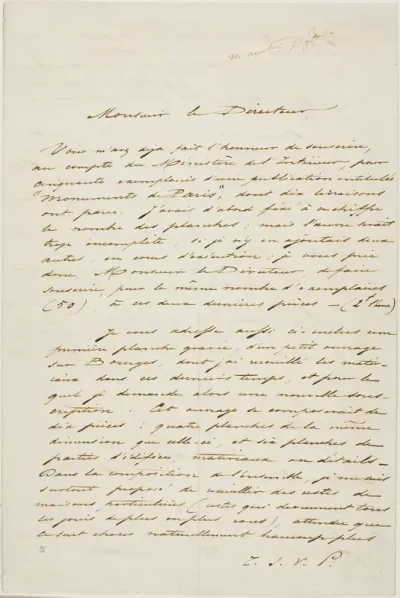 Monsieur le Directeur,
Vous m'avez déjà fait l'honneur de souscrire,
au compte du Ministère de l'Intérieur, pour
cinquante exemplaires d'une publication intitulée
"Monuments de Paris", dont dix livraisons
ont paru. J'avais d'abord fixé à ce chiffre
le nombre des planches; mais l'œuvre serait
trop incomplète, si je n'y en ajoutais deux
autres, en cours d'exécution; je vous prie
donc, Monsieur le Directeur, de faire
souscrire, pour le même nombre d'exemplaires
(50) à ces deux dernières pièces —
Je vous adresse aussi ci-inclus une
première planche gravée, d'un petit ouvrage
sur Bourges, dont j'ai recueilli les maté-
riaux dans ces derniers temps, et pour le
quel je demande alors une nouvelle sous-
cription. Cet ouvrage se composerait de
dix pièces: quatre planches de la même
dimension que celle-ci, et six planches de
parties d'édifices, matériaux en détails —
Dans la composition de l'ensemble, je me suis
surtout proposé de recueillir des restes de
maisons particulières (restes qui deviennent tous
les jours de plus en plus rares), attendu que
ce sont choses naturellement beaucoup plus
T. S. V. P.